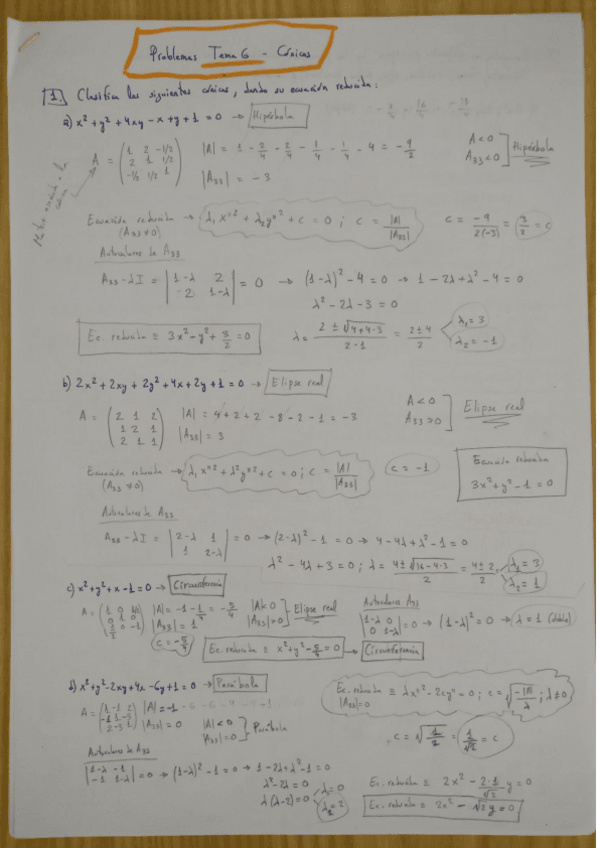 Problemas Tema 6 - Cónicas
1 Clasifica las siguientes cónicas, dando su ecuación reducida:
a) x² + y² + 4xy - x + y + 1 = 0 → Hipérbola
A = (1 2 -1/2
2 1 1/2
-1/2 1/2 1) |A| = 1 - 2/4 - 2/4 - 1/4 - 1/4 - 4 = -9/2
|A33| = -3
A < 0
A33 < 0 ] Hipérbola
Matriz asociada a la cónica
Ecuación reducida → λ₁x''² + λ₂y''² + c = 0 ; c = |A|/|A33|
(A33 ≠ 0)
c = -9/2(-3) = 3/2 = c
Autovalores de A33
A33 - λI = |1-λ 2
2 1-λ| = 0 → (1-λ)² - 4 = 0 → 1 - 2λ + λ² - 4 = 0
λ² - 2λ - 3 = 0
Ec. reducida ≡ 3x² - y² + 3/2 = 0
λ = 2 ± √4+4·3 / 2·1 = 2±4/2
λ₁ = 3
λ₂ = -1
b) 2x² + 2xy + 2y² + 4x + 2y + 1 = 0 → Elipse real
A = (2 1 2
1 2 1
2 1 1) |A| = 4 + 2 + 2 - 8 - 2 - 1 = -3
|A33| = 3
A < 0
A33 > 0 ] Elipse real
Ecuación reducida → λ₁x''² + λ²y''² + c = 0 ; c = |A|/|A33|
(A33 ≠ 0)
c = -1
Ecuación reducida
3x² + y² - 1 = 0
Autovalores de A33
A33 - λI = |2-λ 1
1 2-λ| = 0 → (2-λ)² - 1 = 0 → 4 - 4λ + λ² - 1 = 0
λ² - 4λ + 3 = 0 ; λ = 4 ± √16-4·3 / 2 = 4±2/2
λ₁ = 3
λ₂ = 1
c) x² + y² + x - 1 = 0 → Circunferencia
A = (1 0 1/2
0 1 0
1/2 0 -1) |A| = -1 - 1/4 = -5/4
|A33| = 1
|A| < 0
|A33| > 0 } Elipse real
c = -5/4
Autovalores A33
|1-λ 0
0 1-λ| = 0 → (1-λ)² = 0 → λ = 1 (doble)
Ec. reducida ≡ x² + y² - 5/4 = 0 → Circunferencia
d) x² + y² - 2xy + 4x - 6y + 1 = 0 → Parábola
A = (1 -1 2
-1 1 -3
2 -3 1) |A| = -1
|A33| = 0
|A| < 0
|A33| = 0 } Parábola
Ec. reducida ≡ λx''² - 2cy'' = 0 ; c = √-|A|/λ ; λ ≠ 0
|A33| = 0
c = √1/2 = 1/√2 = c
Autovalores de A33
|1-λ -1
-1 1-λ| = 0 → (1-λ)² - 1 = 0 → 1 - 2λ + λ² - 1 = 0
λ² - 2λ = 0
λ(λ-2) = 0
λ₁ = 0
λ₂ = 2
Ec. reducida ≡ 2x² - 2·1/√2 y = 0
Ec. reducida ≡ 2x² - √2 y = 0